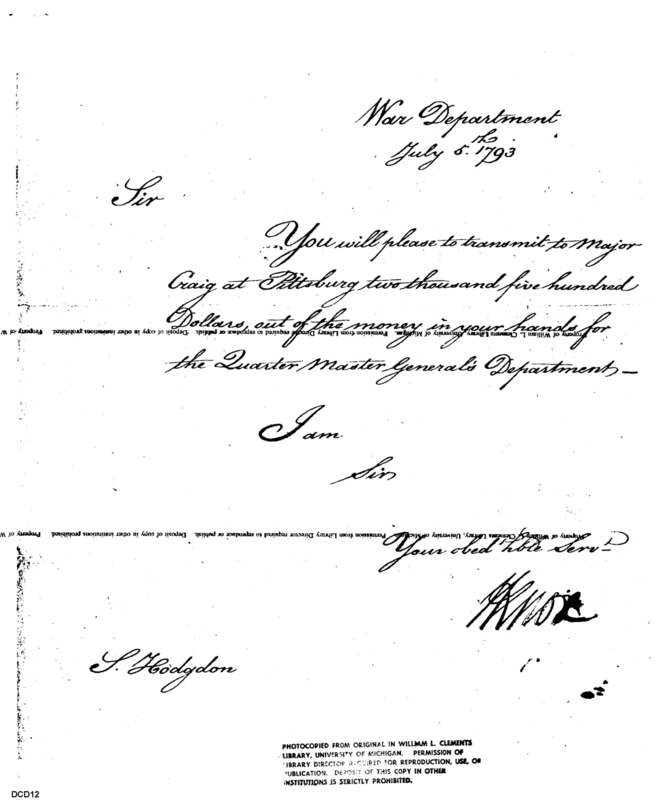 War Department
July 5.th 1793
Sir
You will please to transmit to Major
Craig at Pittsburg two thousand five hundred
Property of William L. Clements Library, University of Michigan. Permission from Library Director required to reproduce or publish. Deposit of copy in other institutions prohibited. Property of W
Dollars, out of the money in your hands for
the Quarter Master General's Department—
I am
Sir
Property of William L. Clements Library, University of Michigan. Permission from Library Director required to reproduce or publish. Deposit of copy in other institutions prohibited. Property of W
Your obed hble Servt
HKnox
S. Hodgdon
PHOTOCOPIED FROM ORIGINAL IN WILLIAM L. CLEMENTS
LIBRARY, UNIVERSITY OF MICHIGAN. PERMISSION OF
LIBRARY DIRECTOR REQUIRED FOR REPRODUCTION, USE, OR
PUBLICATION. DEPOSIT OF THIS COPY IN OTHER
INSTITUTIONS IS STRICTLY PROHIBITED.
DCD12